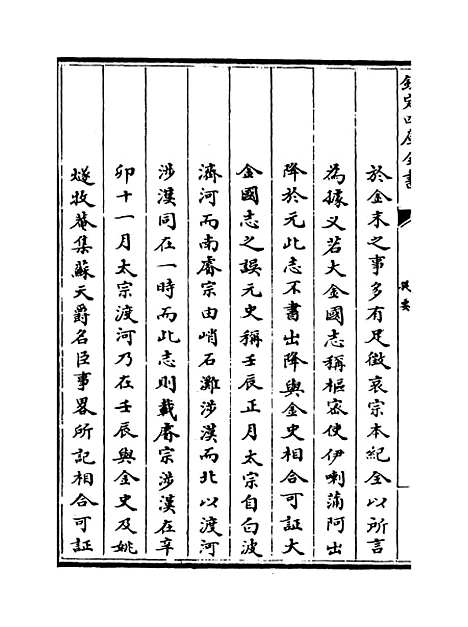 欽定四庫全書
提要
於金末之事多有足徵哀宗本紀全以所言
為據又若大金國志稱樞宻使伊喇蒲阿出
降於元此志不書出降與金史相合可証大
金國志之誤元史稱壬辰正月太宗自白波
濟河而南睿宗由峭石灘涉漢而北以渡河
涉漢同在一時而此志則載睿宗涉漢在辛
卯十一月太宗渡河乃在壬辰與金史及姚
燧牧菴集蘇天爵名臣事畧所記相合可証